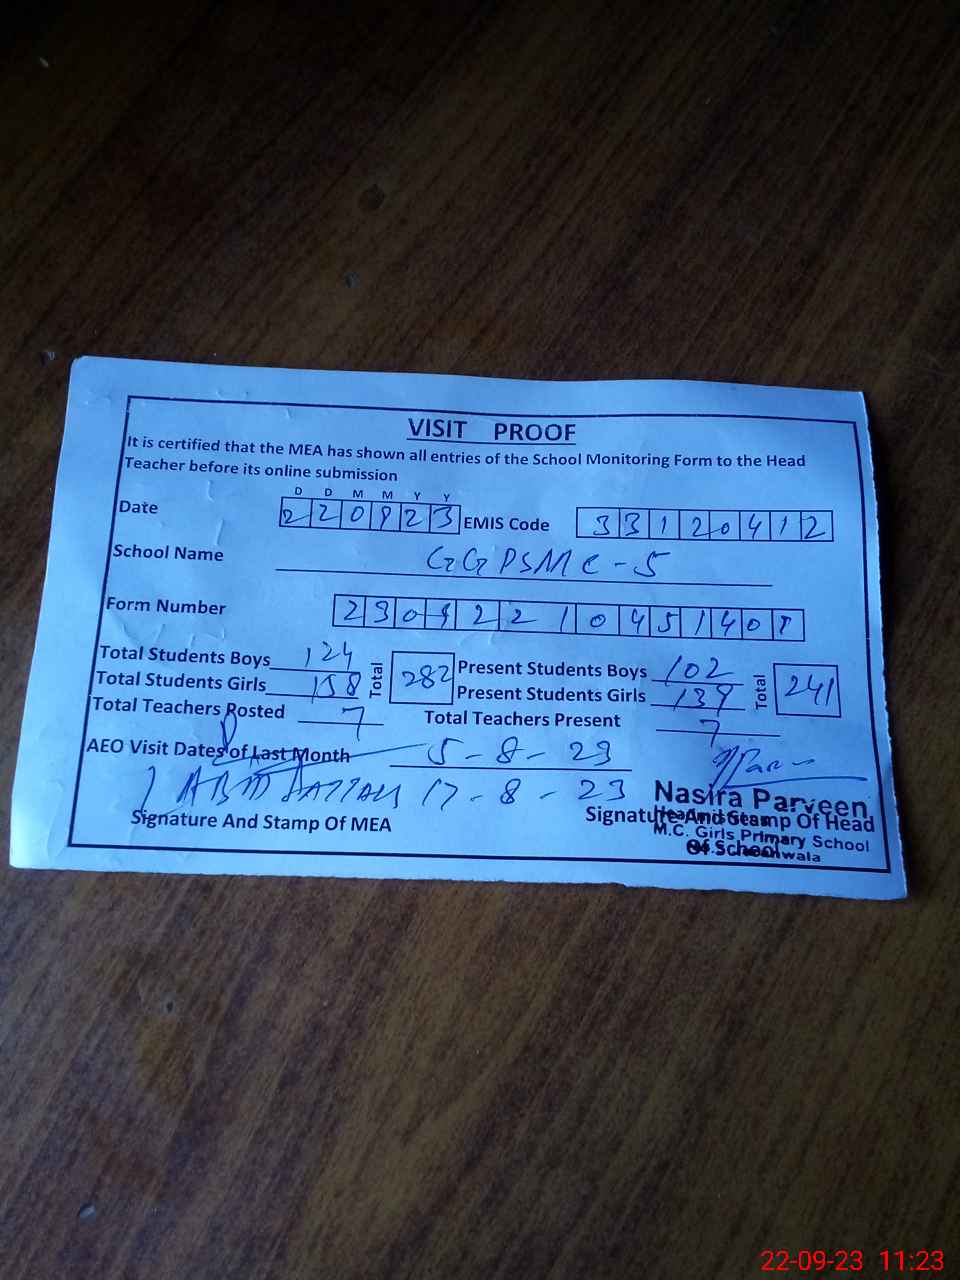 VISIT PROOF
It is certified that the MEA has shown all entries of the School Monitoring Form to the Head
Teacher before its online submission
D D M M Y Y
Date 220923 EMIS Code 33120412
School Name GGPSMC-5
Form Number 230922104514
Total Students Boys 124 Total 282 Present Students Boys 102 Total 241
Total Students Girls 158 Present Students Girls 139
Total Teachers Posted 7 Total Teachers Present 7
AEO Visit Dates of Last Month 5-8-23
17-8-23
Nasira Parveen
Signature And Stamp Of MEA Signature And Stamp Of Head
Of School
Headmistress
M.C. Girls Primary School
22-09-23 11:23